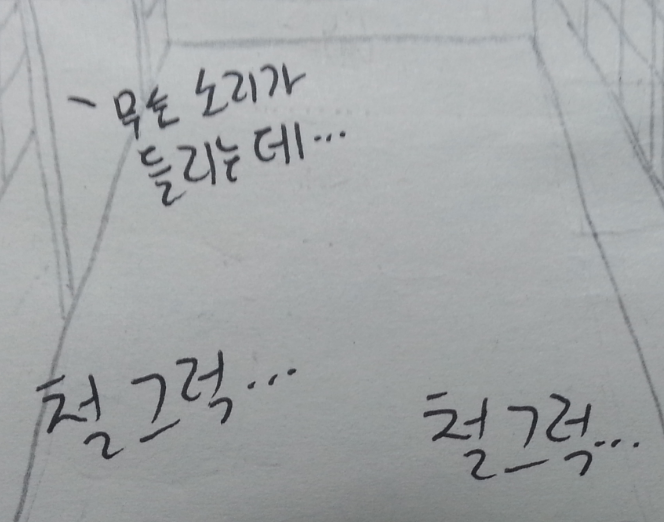 - 무슨 소리가
들리는데...
철그럭...
철그럭...